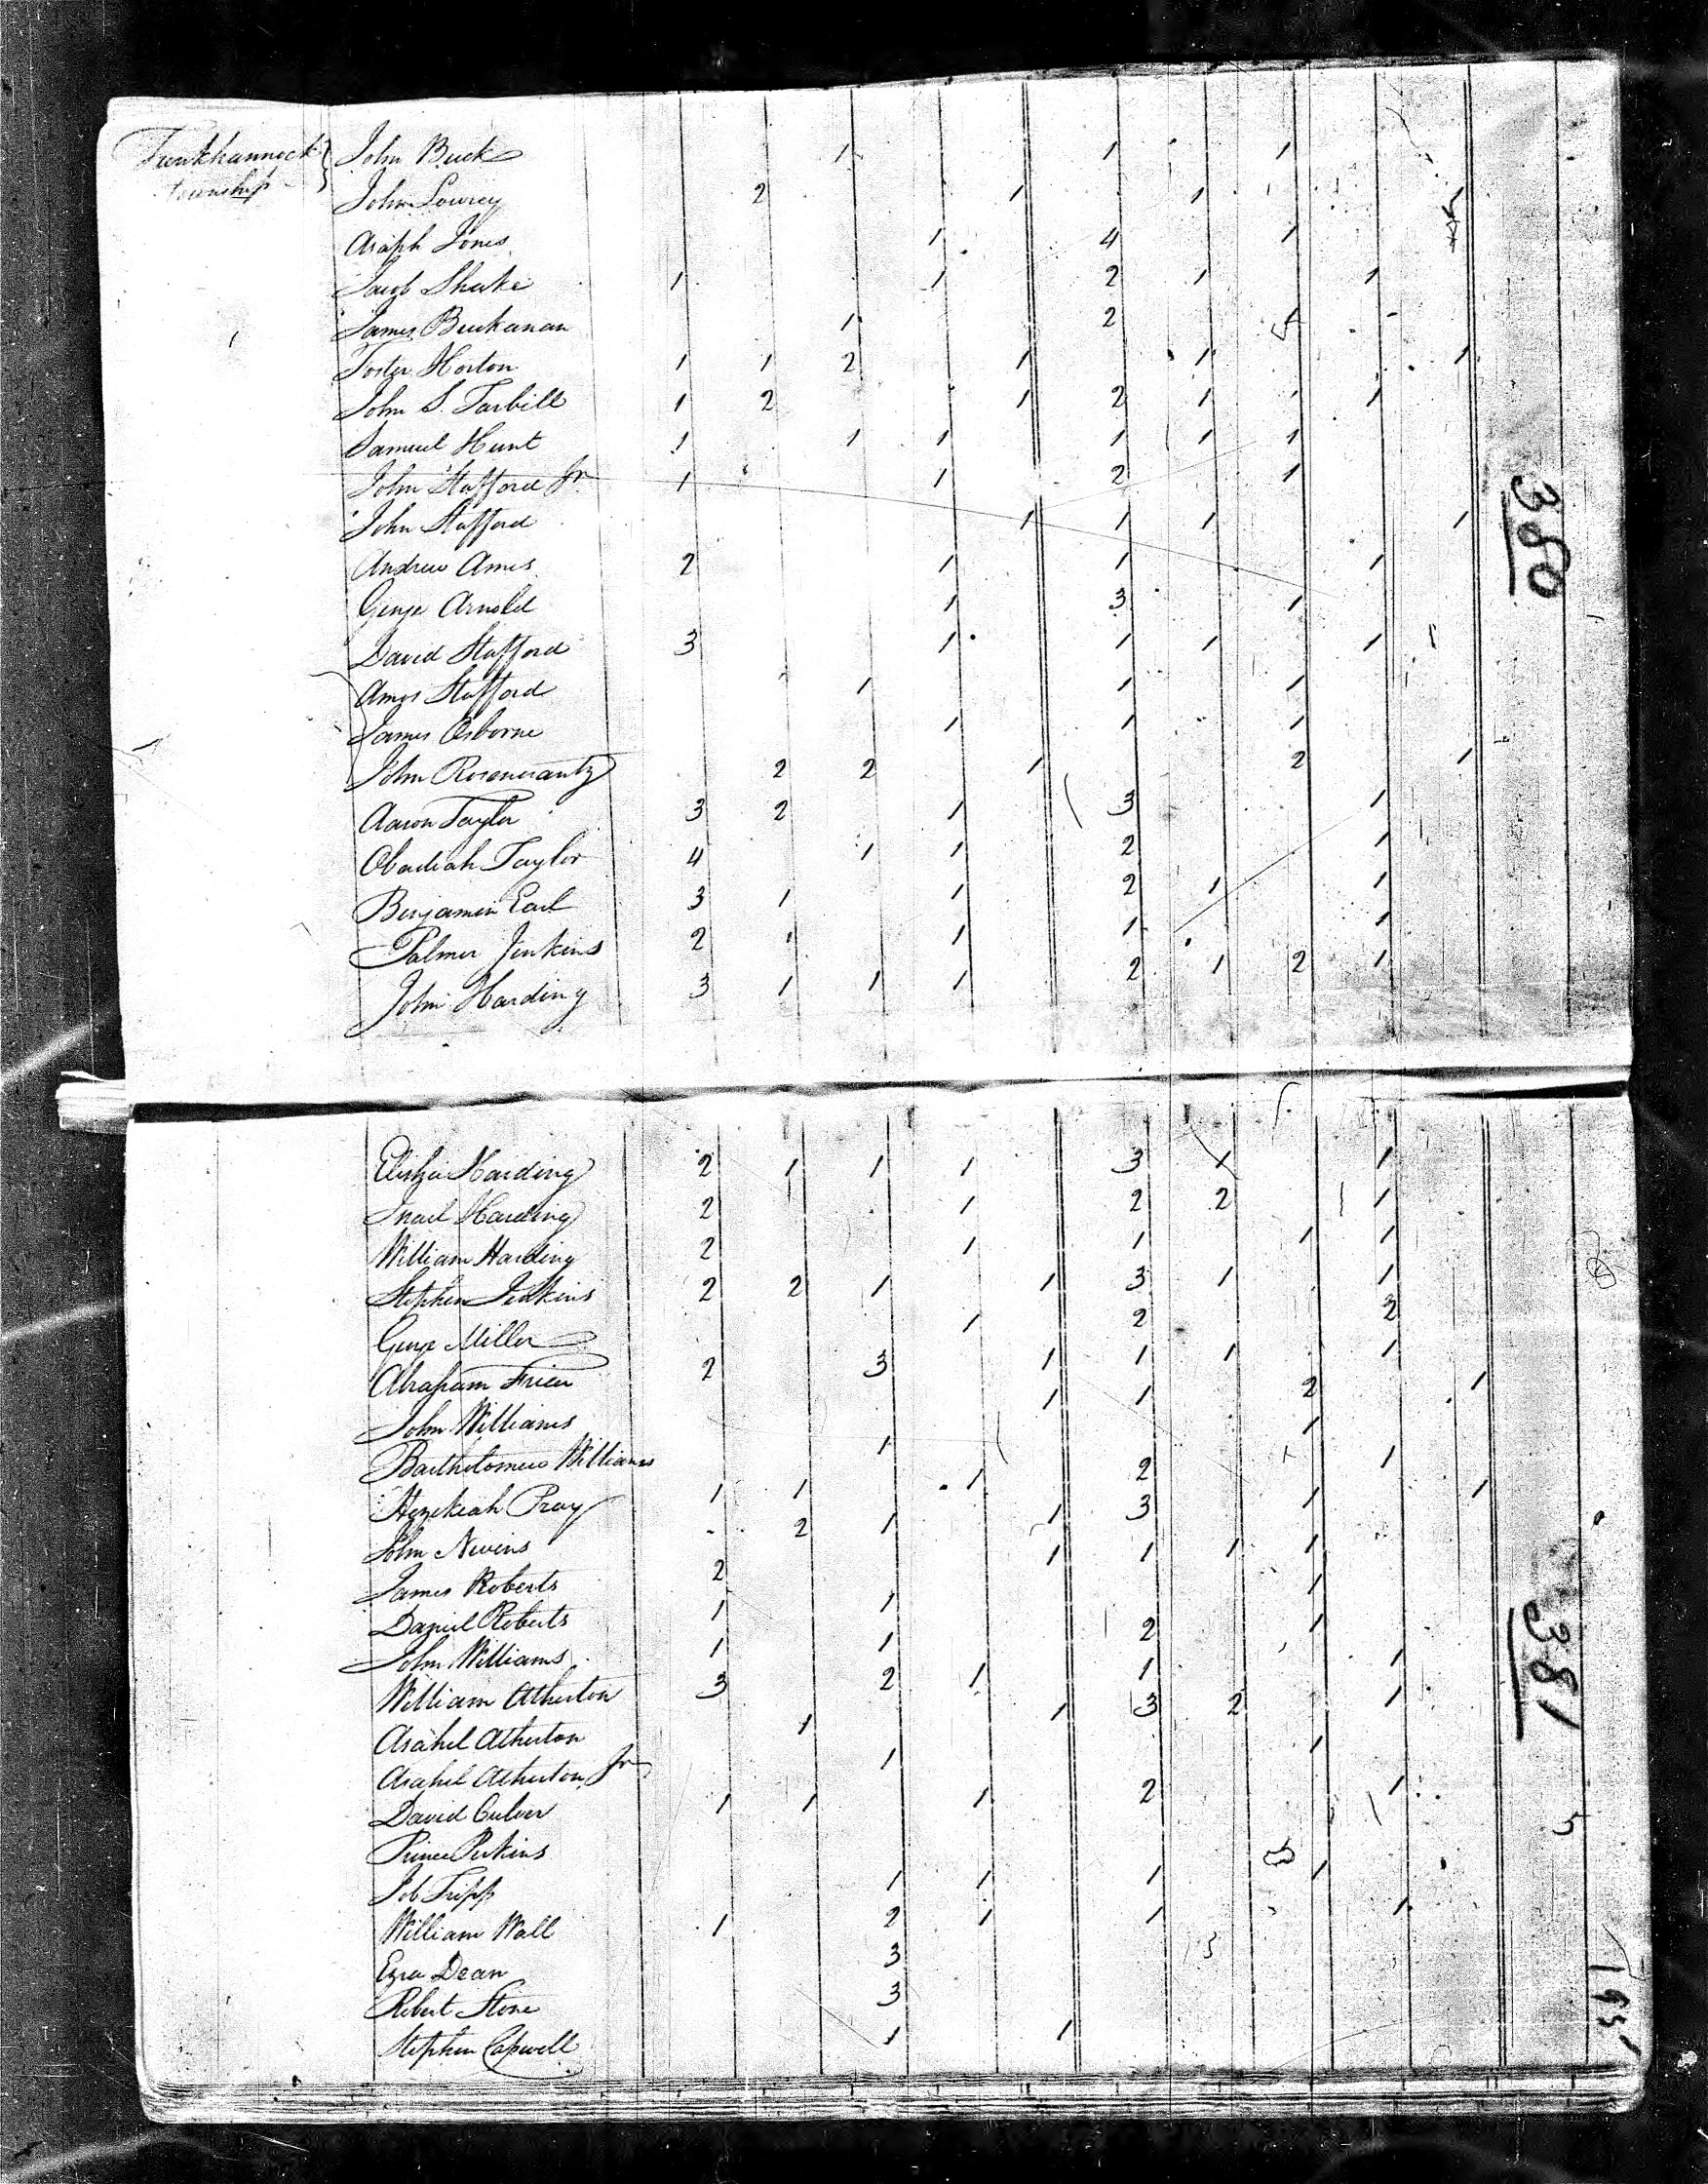 Tunkhannock township } John Buck 1 1 1
John Lowrey 2 1 1 1
Asaph Jones 1 4 1
Jacob Sheske 1 1 2 1 1
James Buckanan 1 2
Foster Horton 1 1 2 1 1 1
John S. Tarbill 1 2 1 2 1 1
Samuel Hunt 1 1 1 1 1 1
John Stafford Jr 1 1 2 1
John Stafford 1 1 1 1
Andrew Ames 2 1 1 1
George Arnold 1 3 1
David Stafford 3 1 1 1 1
Amos Stafford 1 1 1
James Osborne 1 1 1
John Rosencrantz 2 2 1 2 1
Aaron Taylor 3 2 1 3 1
Obadiah Taylor 4 1 1 2 1
Benjamin Earl 3 1 1 2 1 1
Palmer Jenkins 2 1 1 1 1
John Harding 3 1 1 1 2 1 2 1
380
Elisha Harding 2 1 1 1 3 1 1
Harding 2 1 2 2 1
William Harding 2 1 1 1 1
Stephen Jenkins 2 2 1 1 3 1 1
George Miller 1 2 2
Abraham Frier 2 3 1 1 1 1
John Williams 1 1 2 1
Bartholomew Williams 1 1
Hezekiah Pray 1 1 1 2 1
John Nevins 2 1 1 3 1 1
James Roberts 2 1 1 1 1
Daniel Roberts 1 1 1
John Williams 1 1 2 1
William Atherton 3 2 1 1 1
Asahel Atherton 1 1 3 2 1
Asahel Atherton, Jr 1 1
David Culver 1 1 1 2 1
Prince Perkins 5
Job Tripp 1 1 1 1
William Wall 1 2 1 1 1
Ezra Dean 3
Robert Stone 3
Stephen Capwell 1 1
381
195